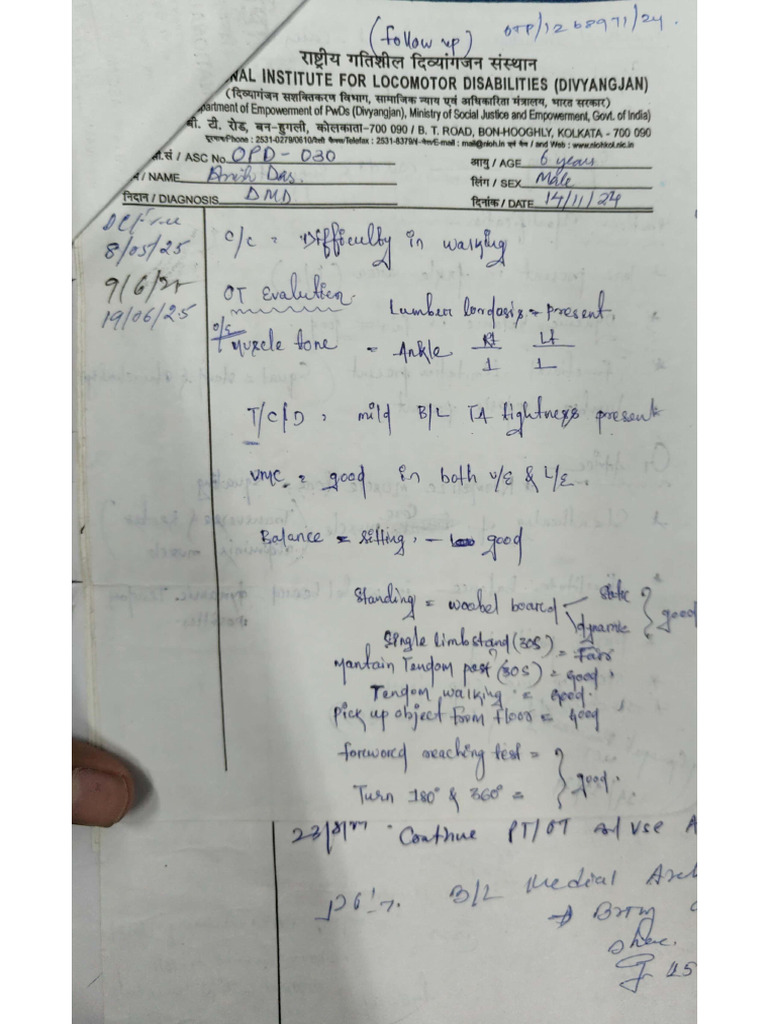 (follow up) OTP/1268971/24.
राष्ट्रीय गतिशील दिव्यांगजन संस्थान
NAL INSTITUTE FOR LOCOMOTOR DISABILITIES (DIVYANGJAN)
(दिव्यांगजन सशक्तिकरण विभाग, सामाजिक न्याय एवं अधिकारिता मंत्रालय, भारत सरकार)
partment of Empowerment of PwDs (Divyangjan), Ministry of Social Justice and Empowerment, Govt. of India)
बी. टी. रोड, बन-हुगली, कोलकाता-700 090 / B. T. ROAD, BON-HOOGHLY, KOLKATA - 700 090
Phone : 2531-0279/0610/ Telefax : 2531-8379/ E-mail : mail@nioh.in एवं वेब / and Web : www.niohkol.nic.in
सं / ASC No. OPD-030 आयु / AGE 6 years
/ NAME Das. लिंग / SEX Male
निदान / DIAGNOSIS DMD दिनांक / DATE 14/11/24
8/05/25
19/06/25
C/C = Difficulty in walking
OT Evalution. Lumber lordosis = present.
O/E
Muscle tone = Ankle Rt Lt
1 1
T/C/D, mild B/L TA tightness present
VMC = good in both U/E & L/E.
Balance = sitting, - good
Standing = woobel board static
dynamic } good
Single limb stand (30S) = Fair
Mantain Tendom post (30S) = good
Tendom walking = good.
Pick up object from floor = good
foreword reaching test =
Turn 180° & 360° = } good.
Continue PT/OT advse A
B/L Medial Arch